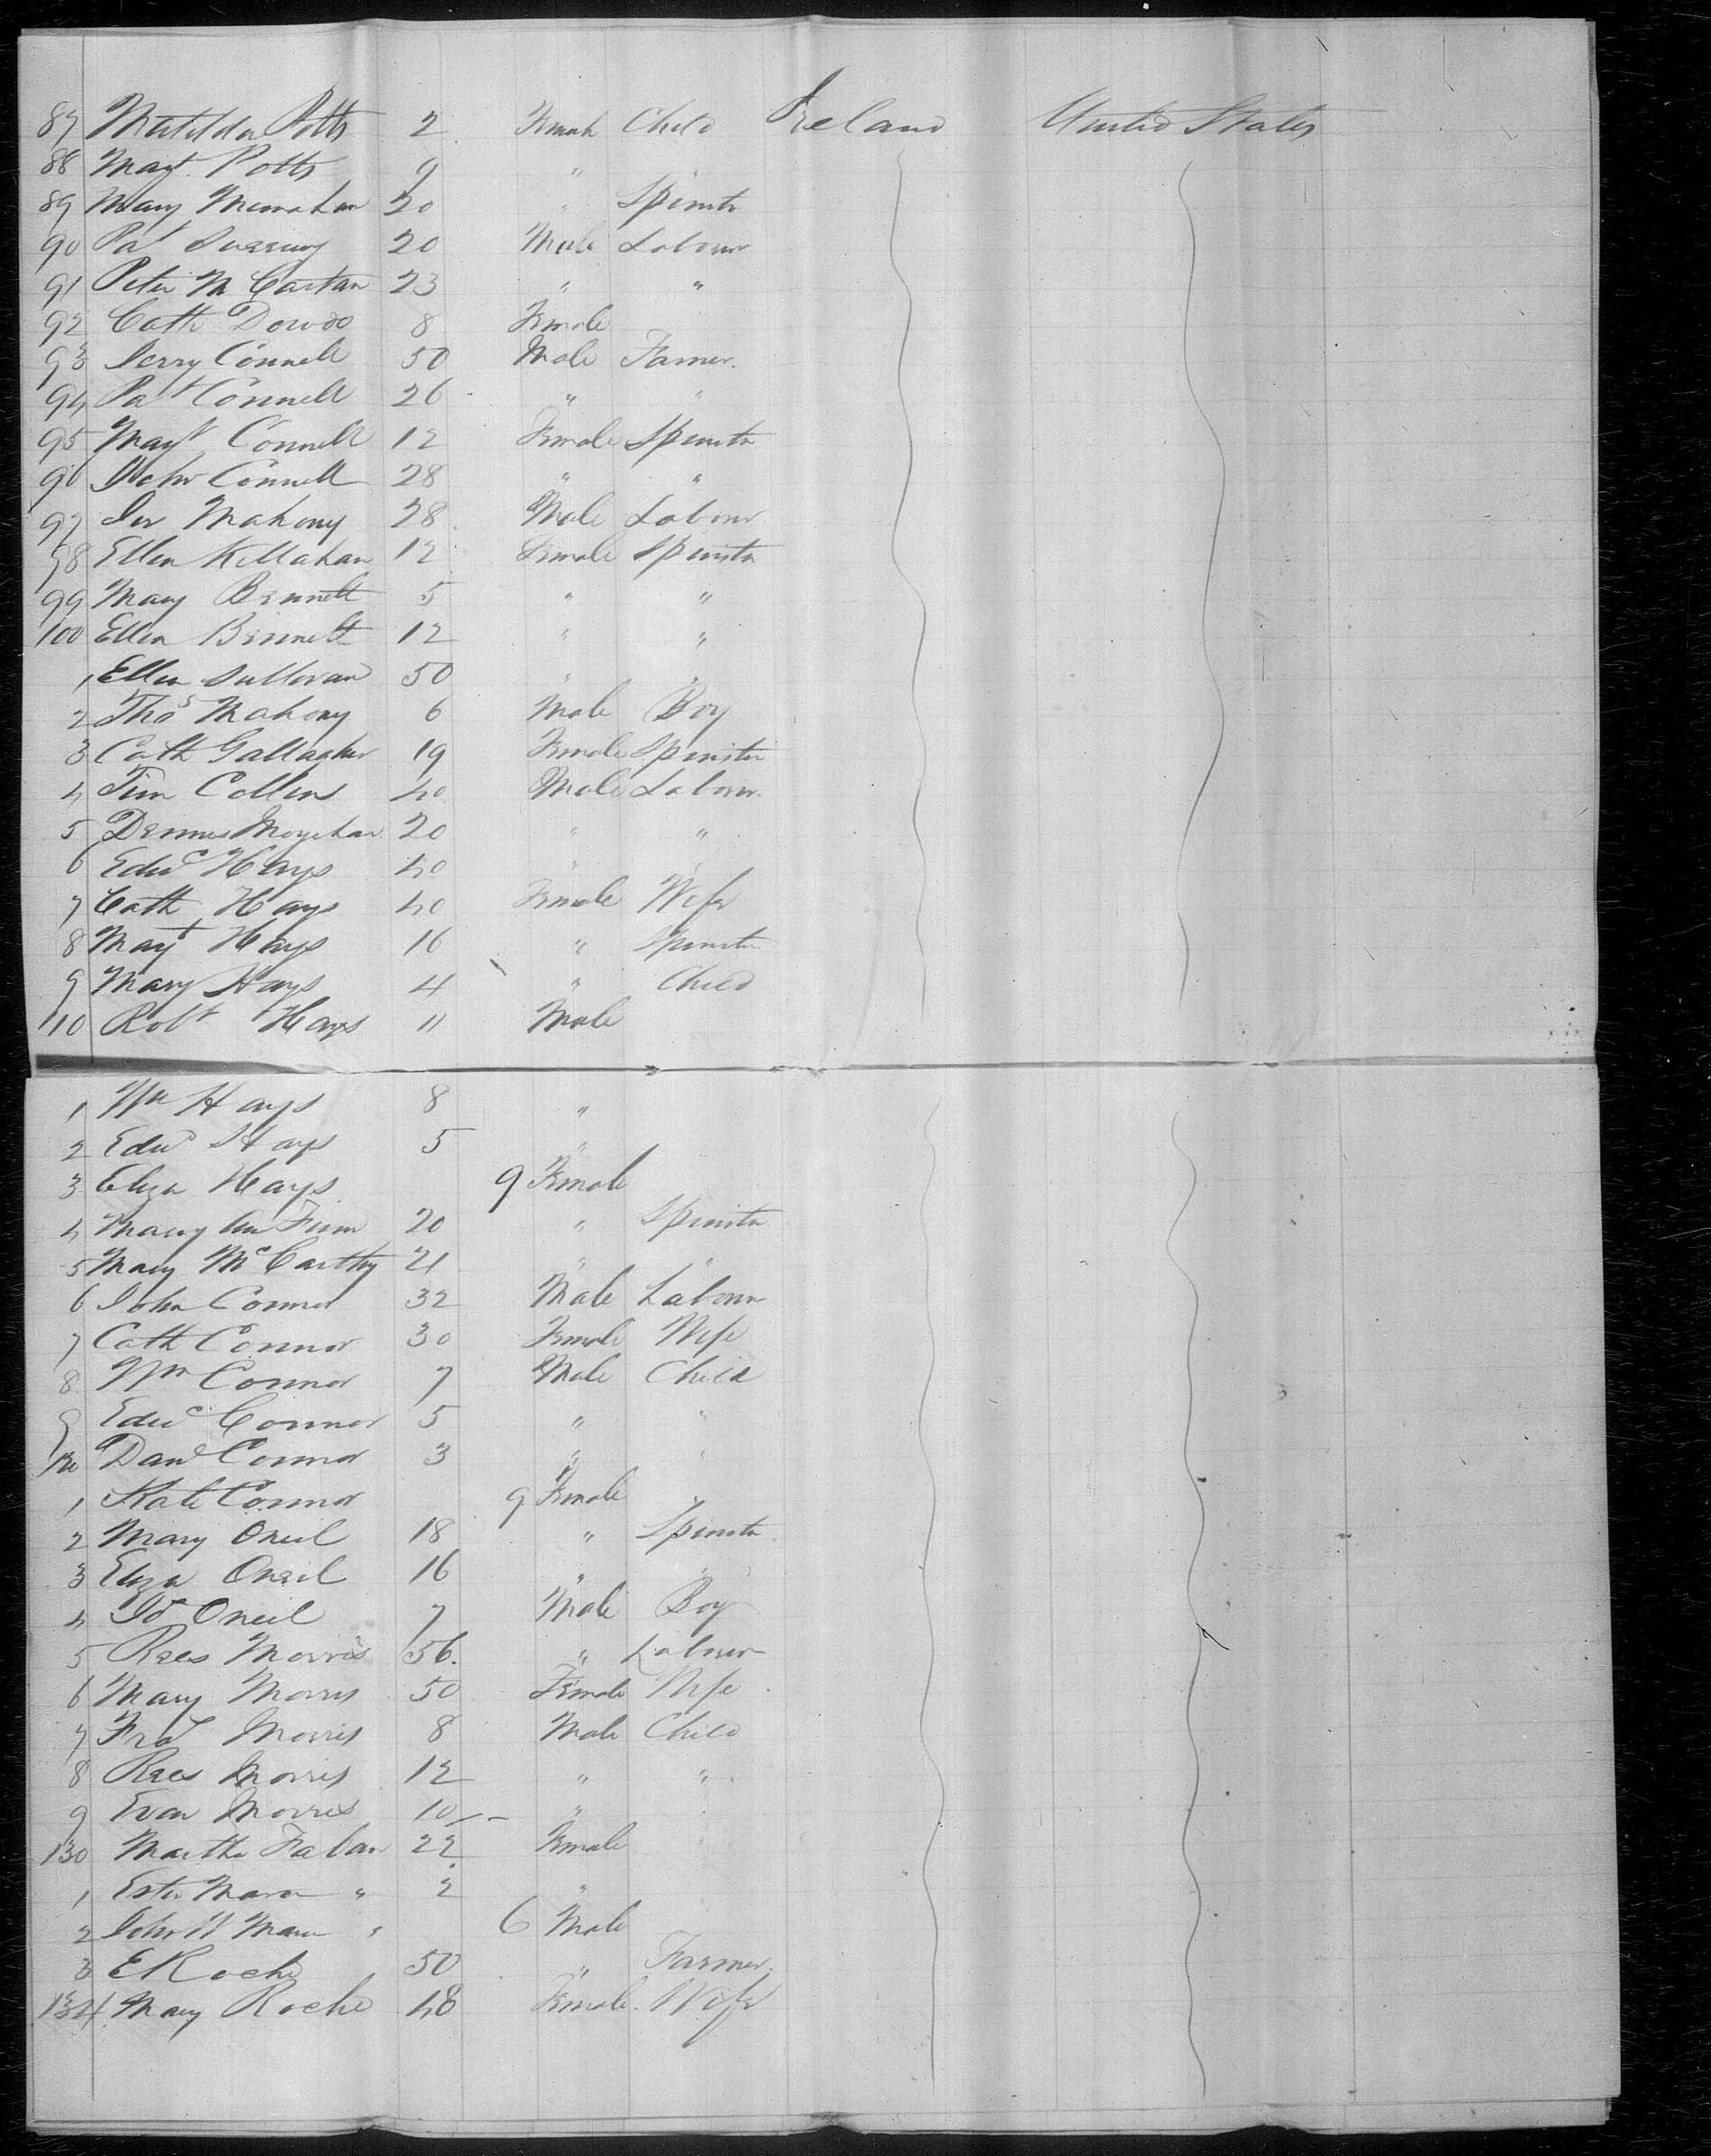 87 Matilda Potts 2 Female Child Ireland United States
88 Mart Potts 9 "
89 Mary 20 " Spinstr
90 Pat 20 Male Labourr
91 Peter Mc Cartan 23 " "
92 Cath Dowdd 8 Female
93 Jerry Connell 50 Male Farmer.
94 Pat Connell 26 " "
95 Mart Connell 12 Female Spinstr
96 John Connell 28 " "
97 Jer Mahony 28 Male Labour
98 Ellen Killahan 12 Female Spinstr
99 Mary Bennett 5 " "
100 Ellen Bennett 12 " "
1 Ellen Sullovan 50 " "
2 Thos Mahony 6 Male Boy
3 Cath Gallagher 19 Female Spinster
4 Tim Collins 40 Male Labour
5 Dennis Moyehan 20 " "
6 Edwd Hays 40 "
7 Cath Hays 40 Female Wife
8 Mart Hays 16 " Spinstr
9 Mary Hays 4 " Child
110 Robt Hays 11 Male
1 Wm Hays 8 "
2 Edwd Hays 5 "
3 Eliza Hays 9 Female
4 Mary Ann 20 " Spinstr
5 Mary McCarthy 21 " "
6 John Connor 32 Male Labour
7 Cath Connor 30 Female Wife
8 Wm Connor 7 Male Child
9 Edwd Connor 5 " "
120 Danl Connor 3 " "
1 Kate Connor 9 Female "
2 Mary Oneil 18 " Spinstr
3 Eliza Oneil 16 " "
4 Oneil 7 Male Boy
5 Rees Morris 56. " Labourr
6 Mary Morris 50 Female Wife
7 Fras Morris 8 Male Child
8 Rees Morris 12 " "
9 Evan Morris 10 "
130 Martha 22 Female
1 Ester " 2 "
2 John " 6 Male
3 E Roche 50 " Farmer
134 Mary Roche 48 Female Wife